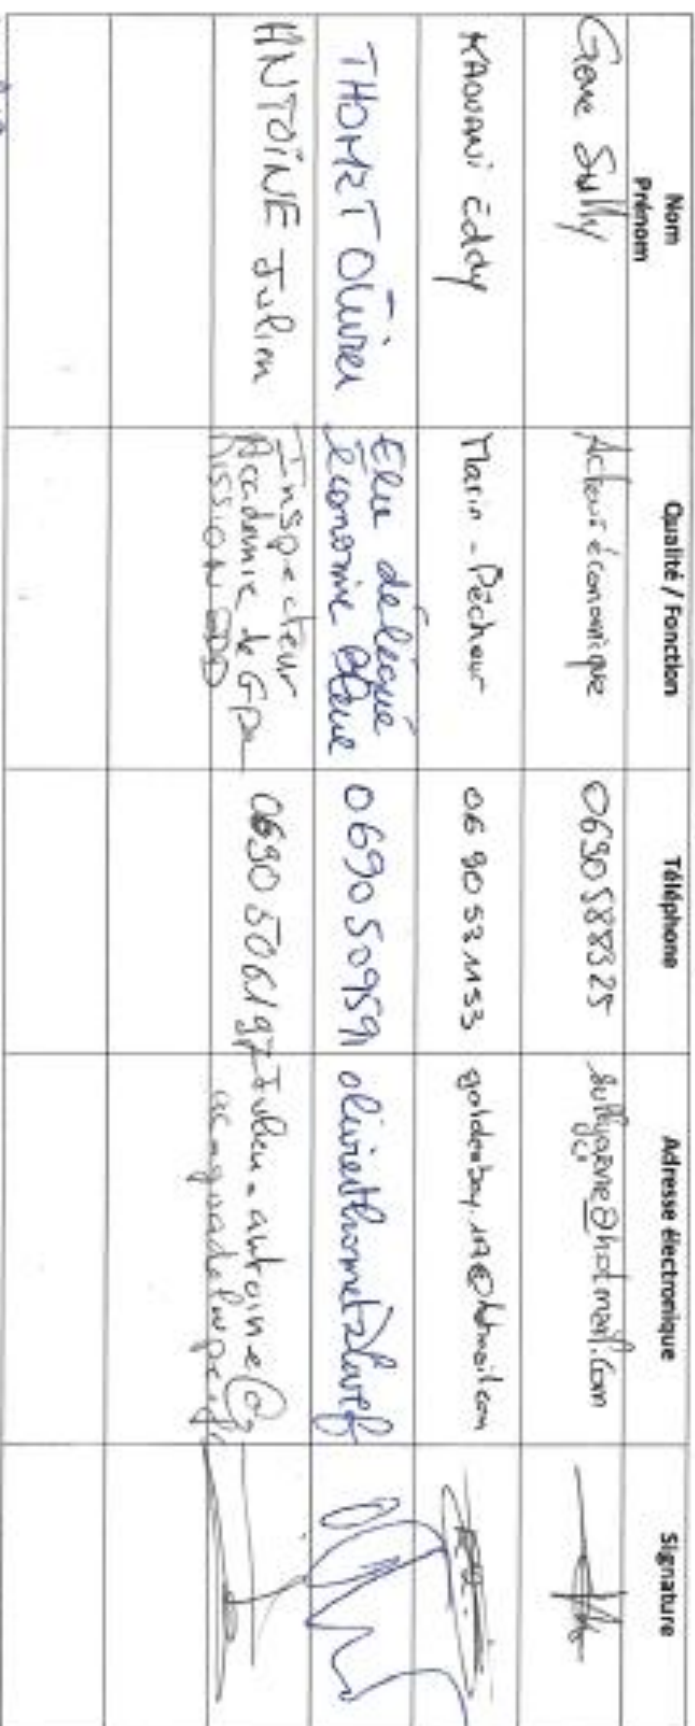 Nom
Prénom
Qualité / Fonction
Téléphone
Adresse électronique
Signature
Sully
Acteur économique
0690588325
KAOUANI Eddy
Marin - Pêcheur
06 90 53 1153
goldenboy.117@hotmail.com
THOMET Olivier
Elu délégué
économie bleue
0690509591
ANTOINE Julien
Inspecteur
Académie de Gpe
MISSION EDD
0690 506197
Julien-antoine@
ac-guadeloupe.fr